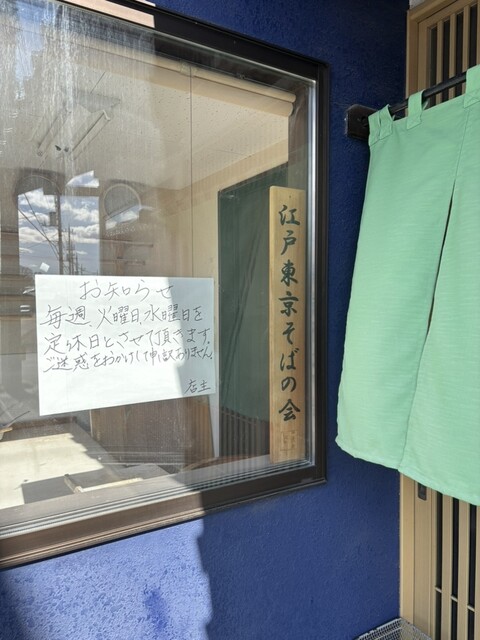 お知らせ
毎週、火曜日、水曜日を
定休日とさせて頂きます。
ご迷惑をおかけして申し訳ありません。
店主
江戸東京そばの会